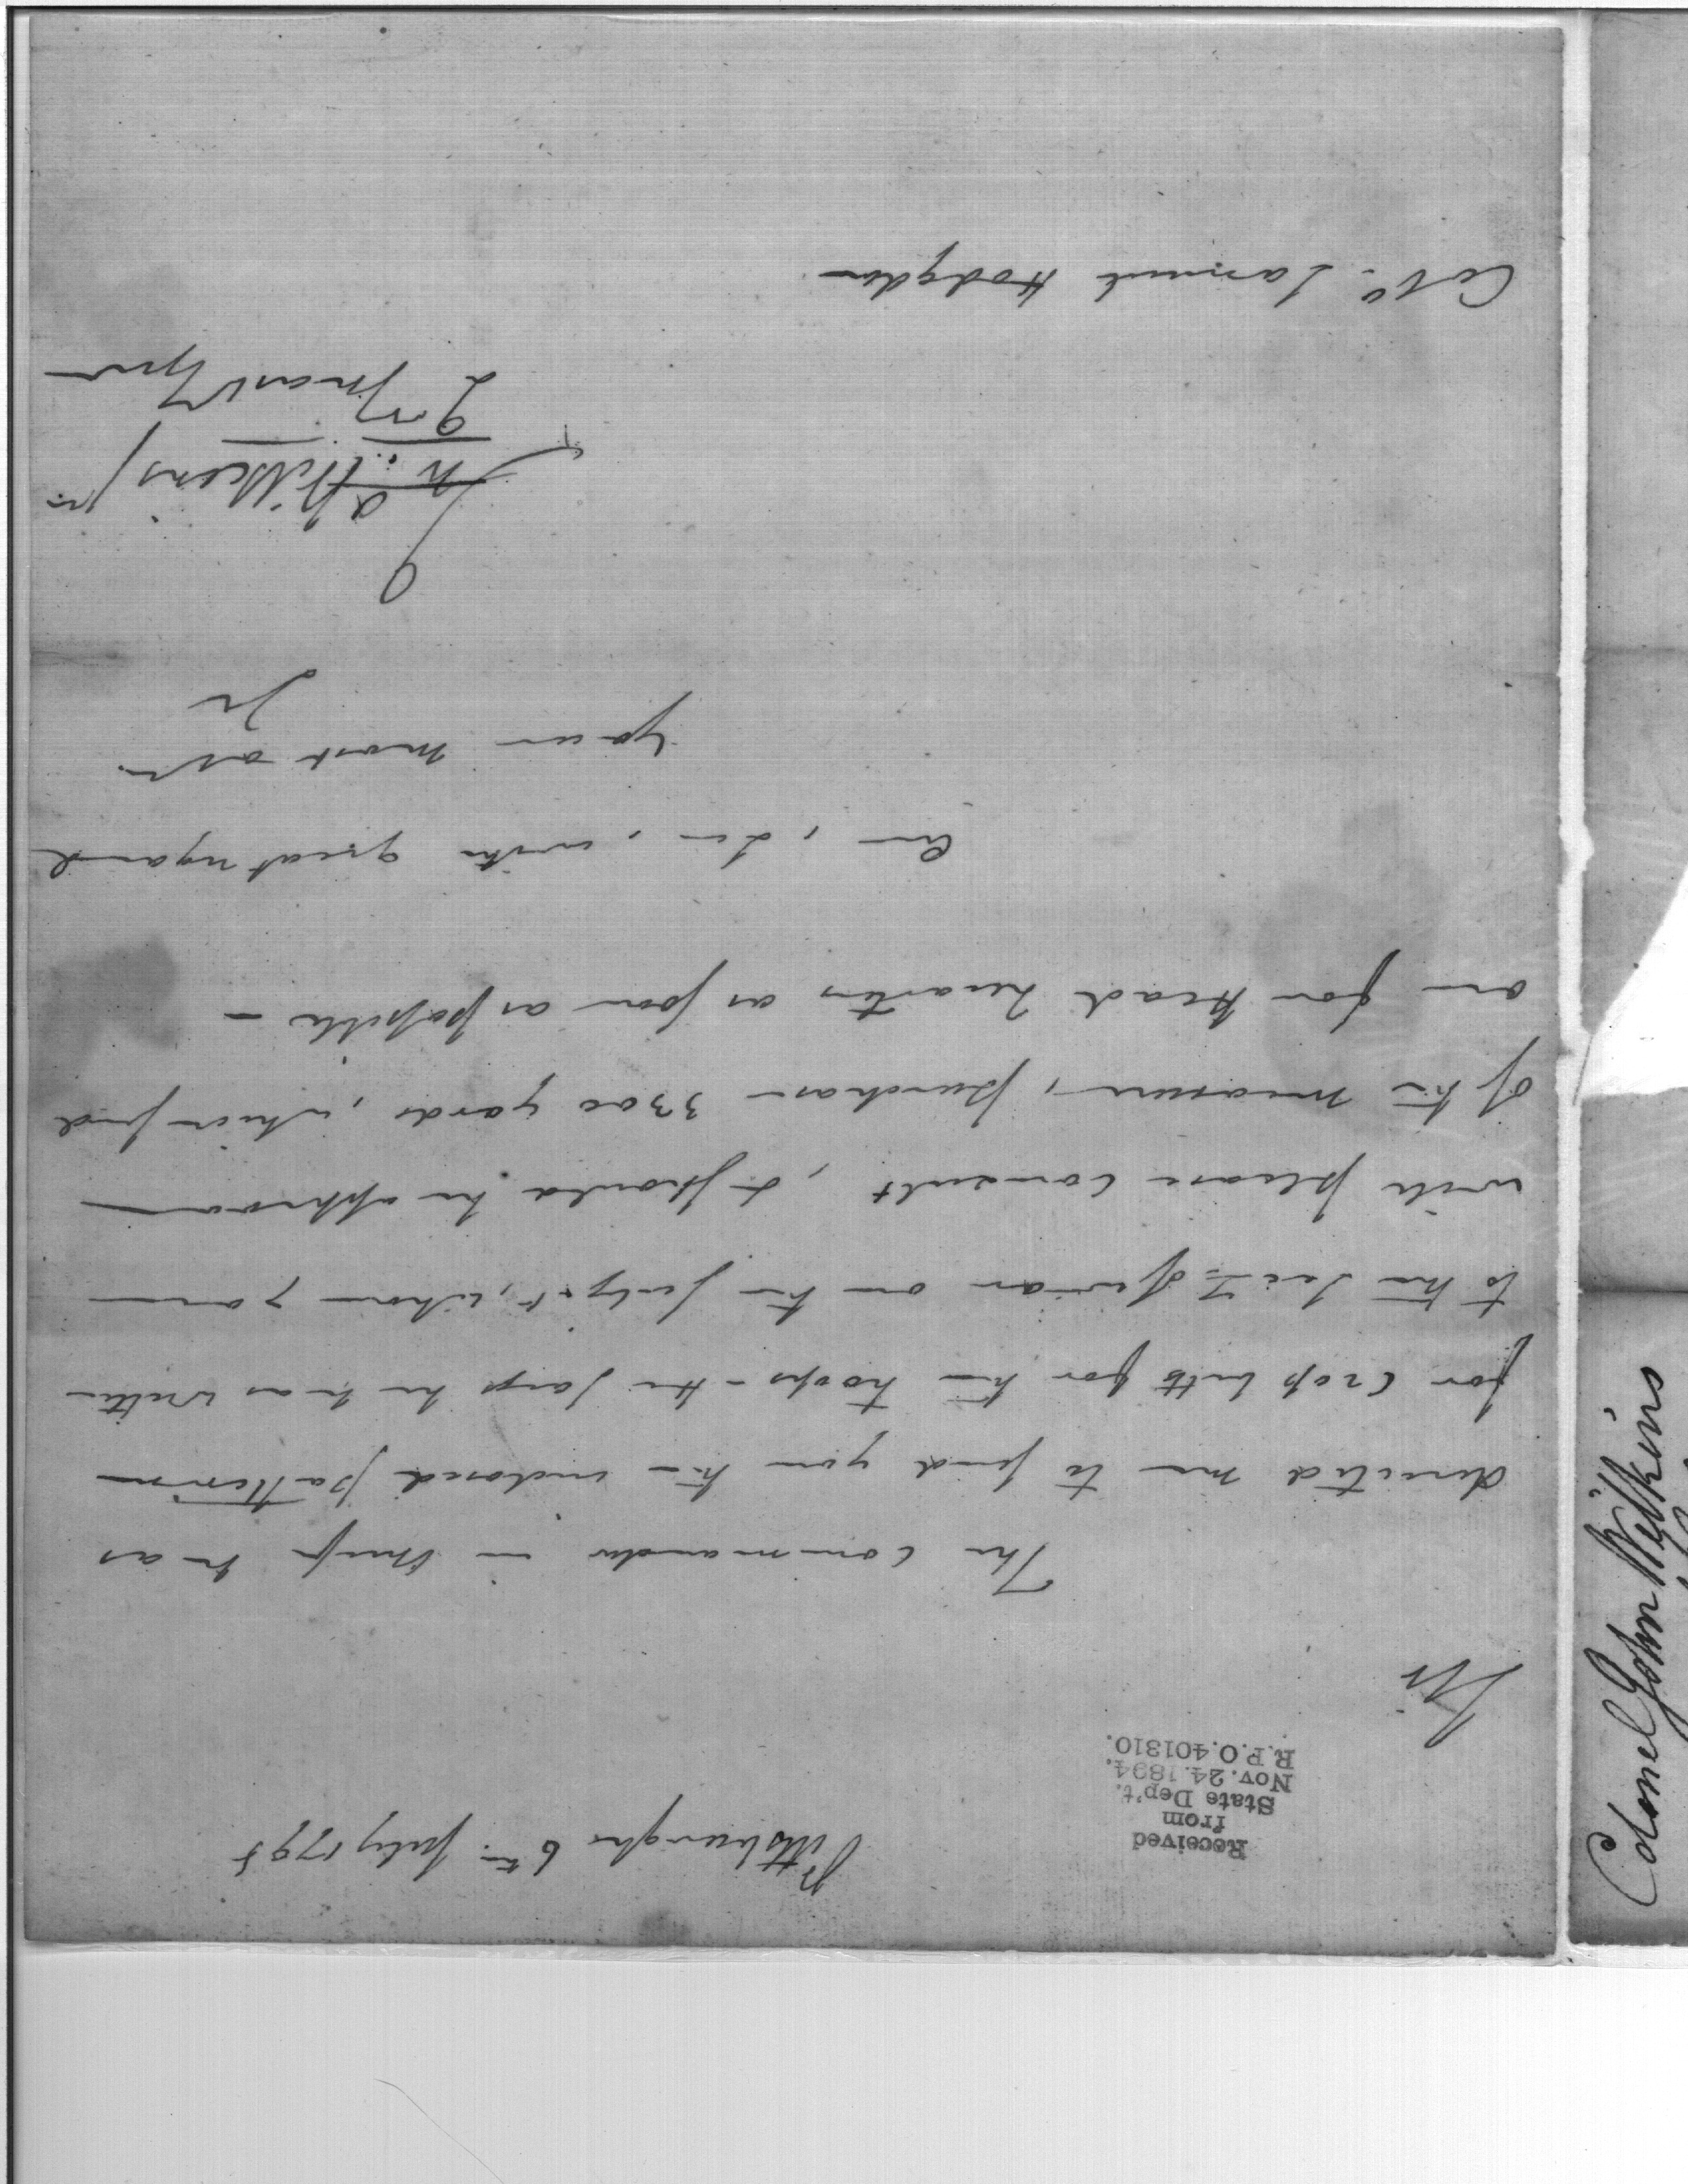 Received
from
State Dep't.
Nov. 24. 1894.
R.P.O. 401310.
Pittsburgh 6th July 1795
Sir
The Commander in Chief has
directed me to send you the inclosed pattern
for Cross belts for the troops - He says he has written
to the Secy. of war on the subject, whom you
will please consult, & should he approve
of the measure, purchase 3300 yards, which send
on for Head Quarters as soon as possible -
Am, Sir, with great regard
Your most obt.
Sr
Jno. Wilkins Jr.
Q M Genl
Colo. Samuel Hodgdon
Colonel John Wilkins